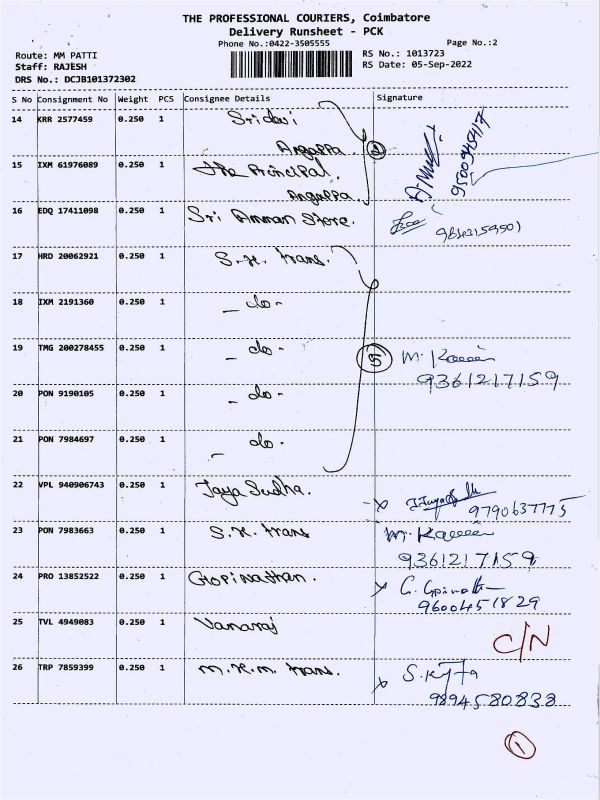 THE PROFESSIONAL COURIERS, Coimbatore
Delivery Runsheet - PCK
Phone No.:0422-3505555
Page No.:2
Route: MM PATTI
RS No.: 1013723
Staff: RAJESH
RS Date: 05-Sep-2022
DRS No.: DCJB101372302
S No Consignment No Weight PCS Consignee Details Signature
14 KRR 2577459 0.250 1 Sridevi
Angappa
2
9500948117
15 IXM 61976089 0.250 1 The Principal,
Angappa
16 EDQ 17411098 0.250 1 Sri Amman Store.
17 HRD 20062921 0.250 1 S.K. trans.
18 IXM 2191360 0.250 1 - do -
19 TMG 200278455 0.250 1 - do - 5 M.
9361217159
20 PON 9190105 0.250 1 - do -
21 PON 7984697 0.250 1 - do -
22 VPL 940906743 0.250 1 Jaya Sudha.
9790637775
23 PON 7983663 0.250 1 S.K. trans M.
9361217159
24 PRO 13852522 0.250 1 Gopinathan.
9600451829
25 TVL 4949083 0.250 1 Vanaraj C/N
26 TRP 7859399 0.250 1 M.K.M. trans. S.
9894580838
1